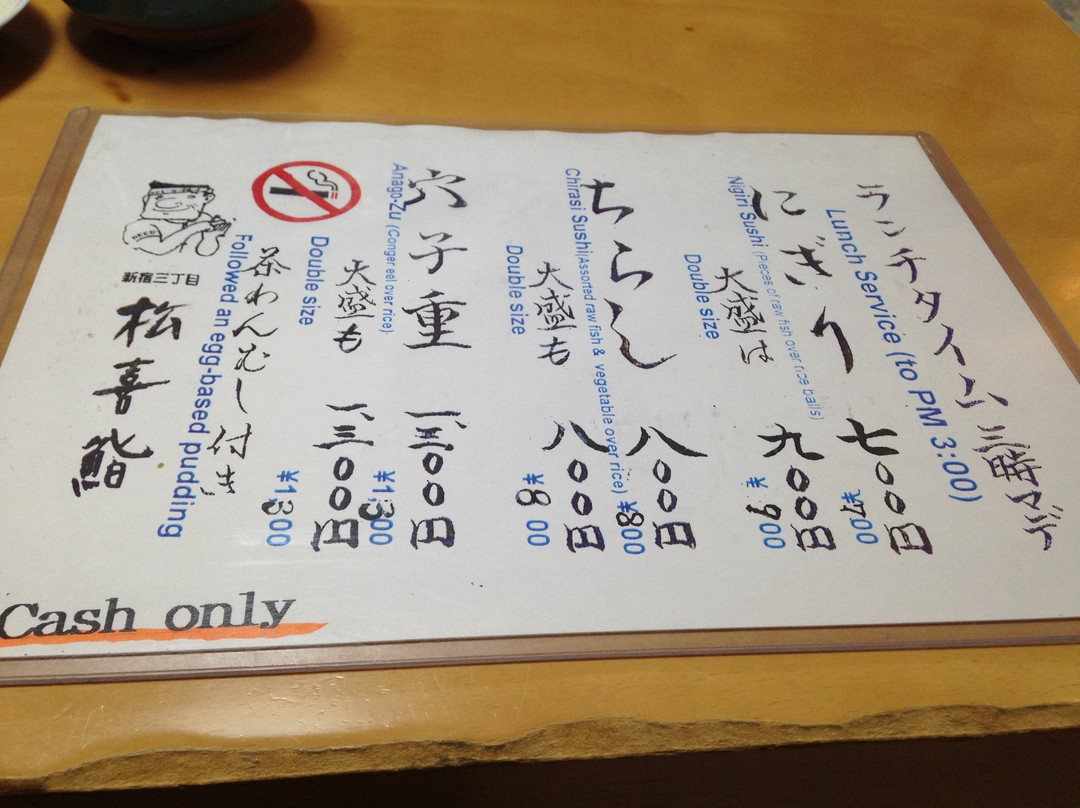 ランチタイム 三時マデ
Lunch Service (to PM 3:00)
にぎり 七〇〇円
Nigiri Sushi (Pieces of raw fish over rice balls)
00
大盛は 九〇〇円
Double size ¥900
ちらし 八〇〇円
Chirasi Sushi(Assorted raw fish & vegetable over rice) ¥800
大盛も 八〇〇円
Double size ¥800
穴子重 一、三〇〇円
Anago-Zu (Conger eel over rice) ¥1,300
大盛も 一、三〇〇円
Double size ¥1,300
茶わんむし付き
Followed an egg-based pudding
新宿三丁目
松喜鮨
Cash only